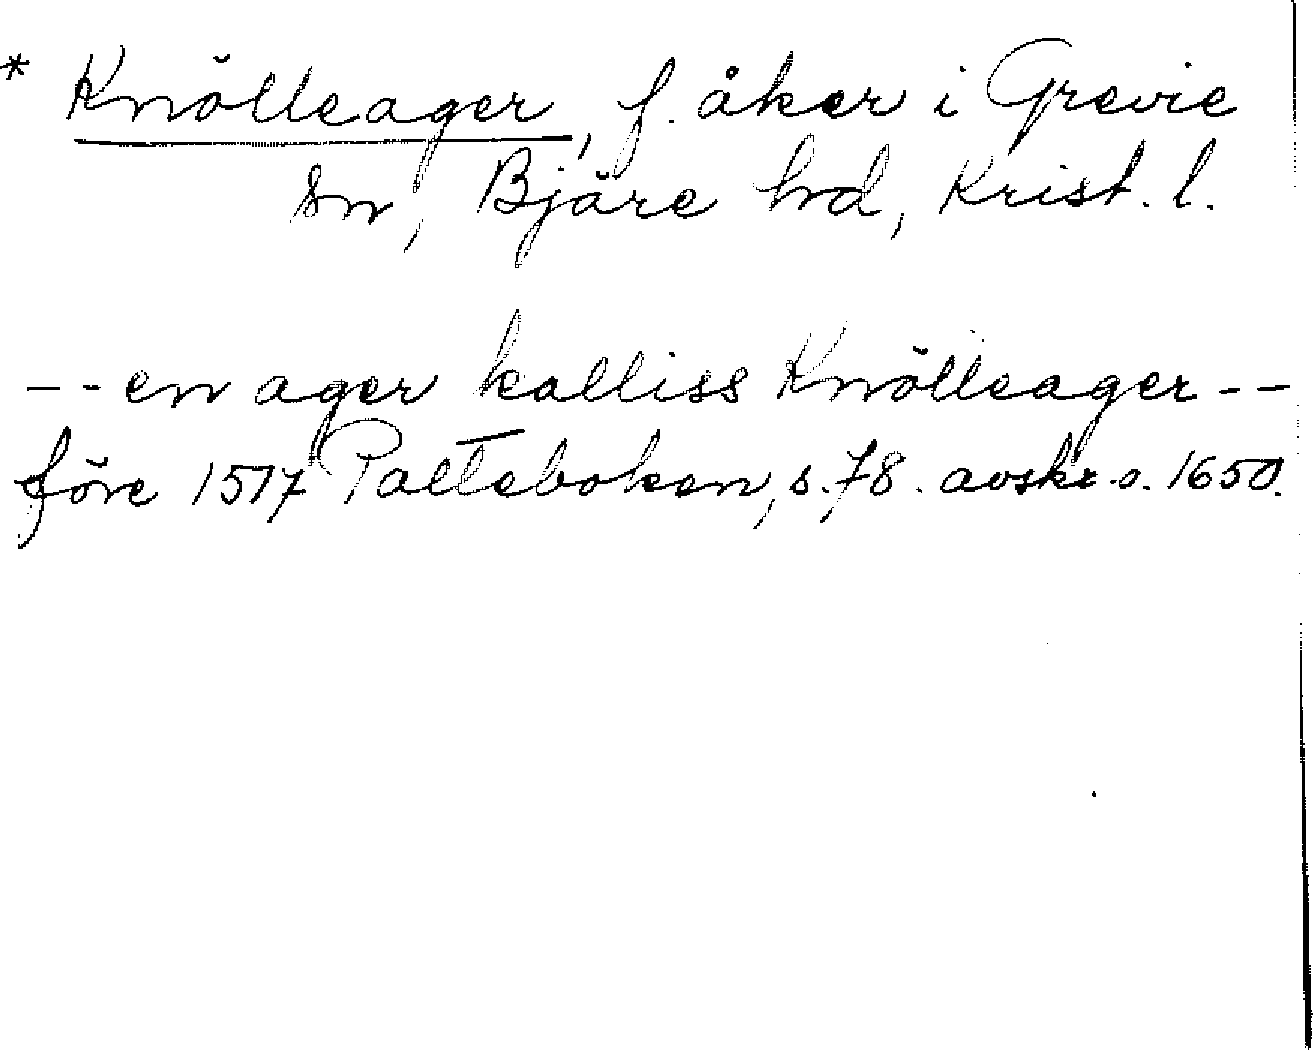 * Knölleager, f. åker i Grevie
sn, Bjäre hd, Krist. l.
-- en ager kalliss Knölleager --
före 1517 Palteboken, s. 78. avskr. o. 1650.